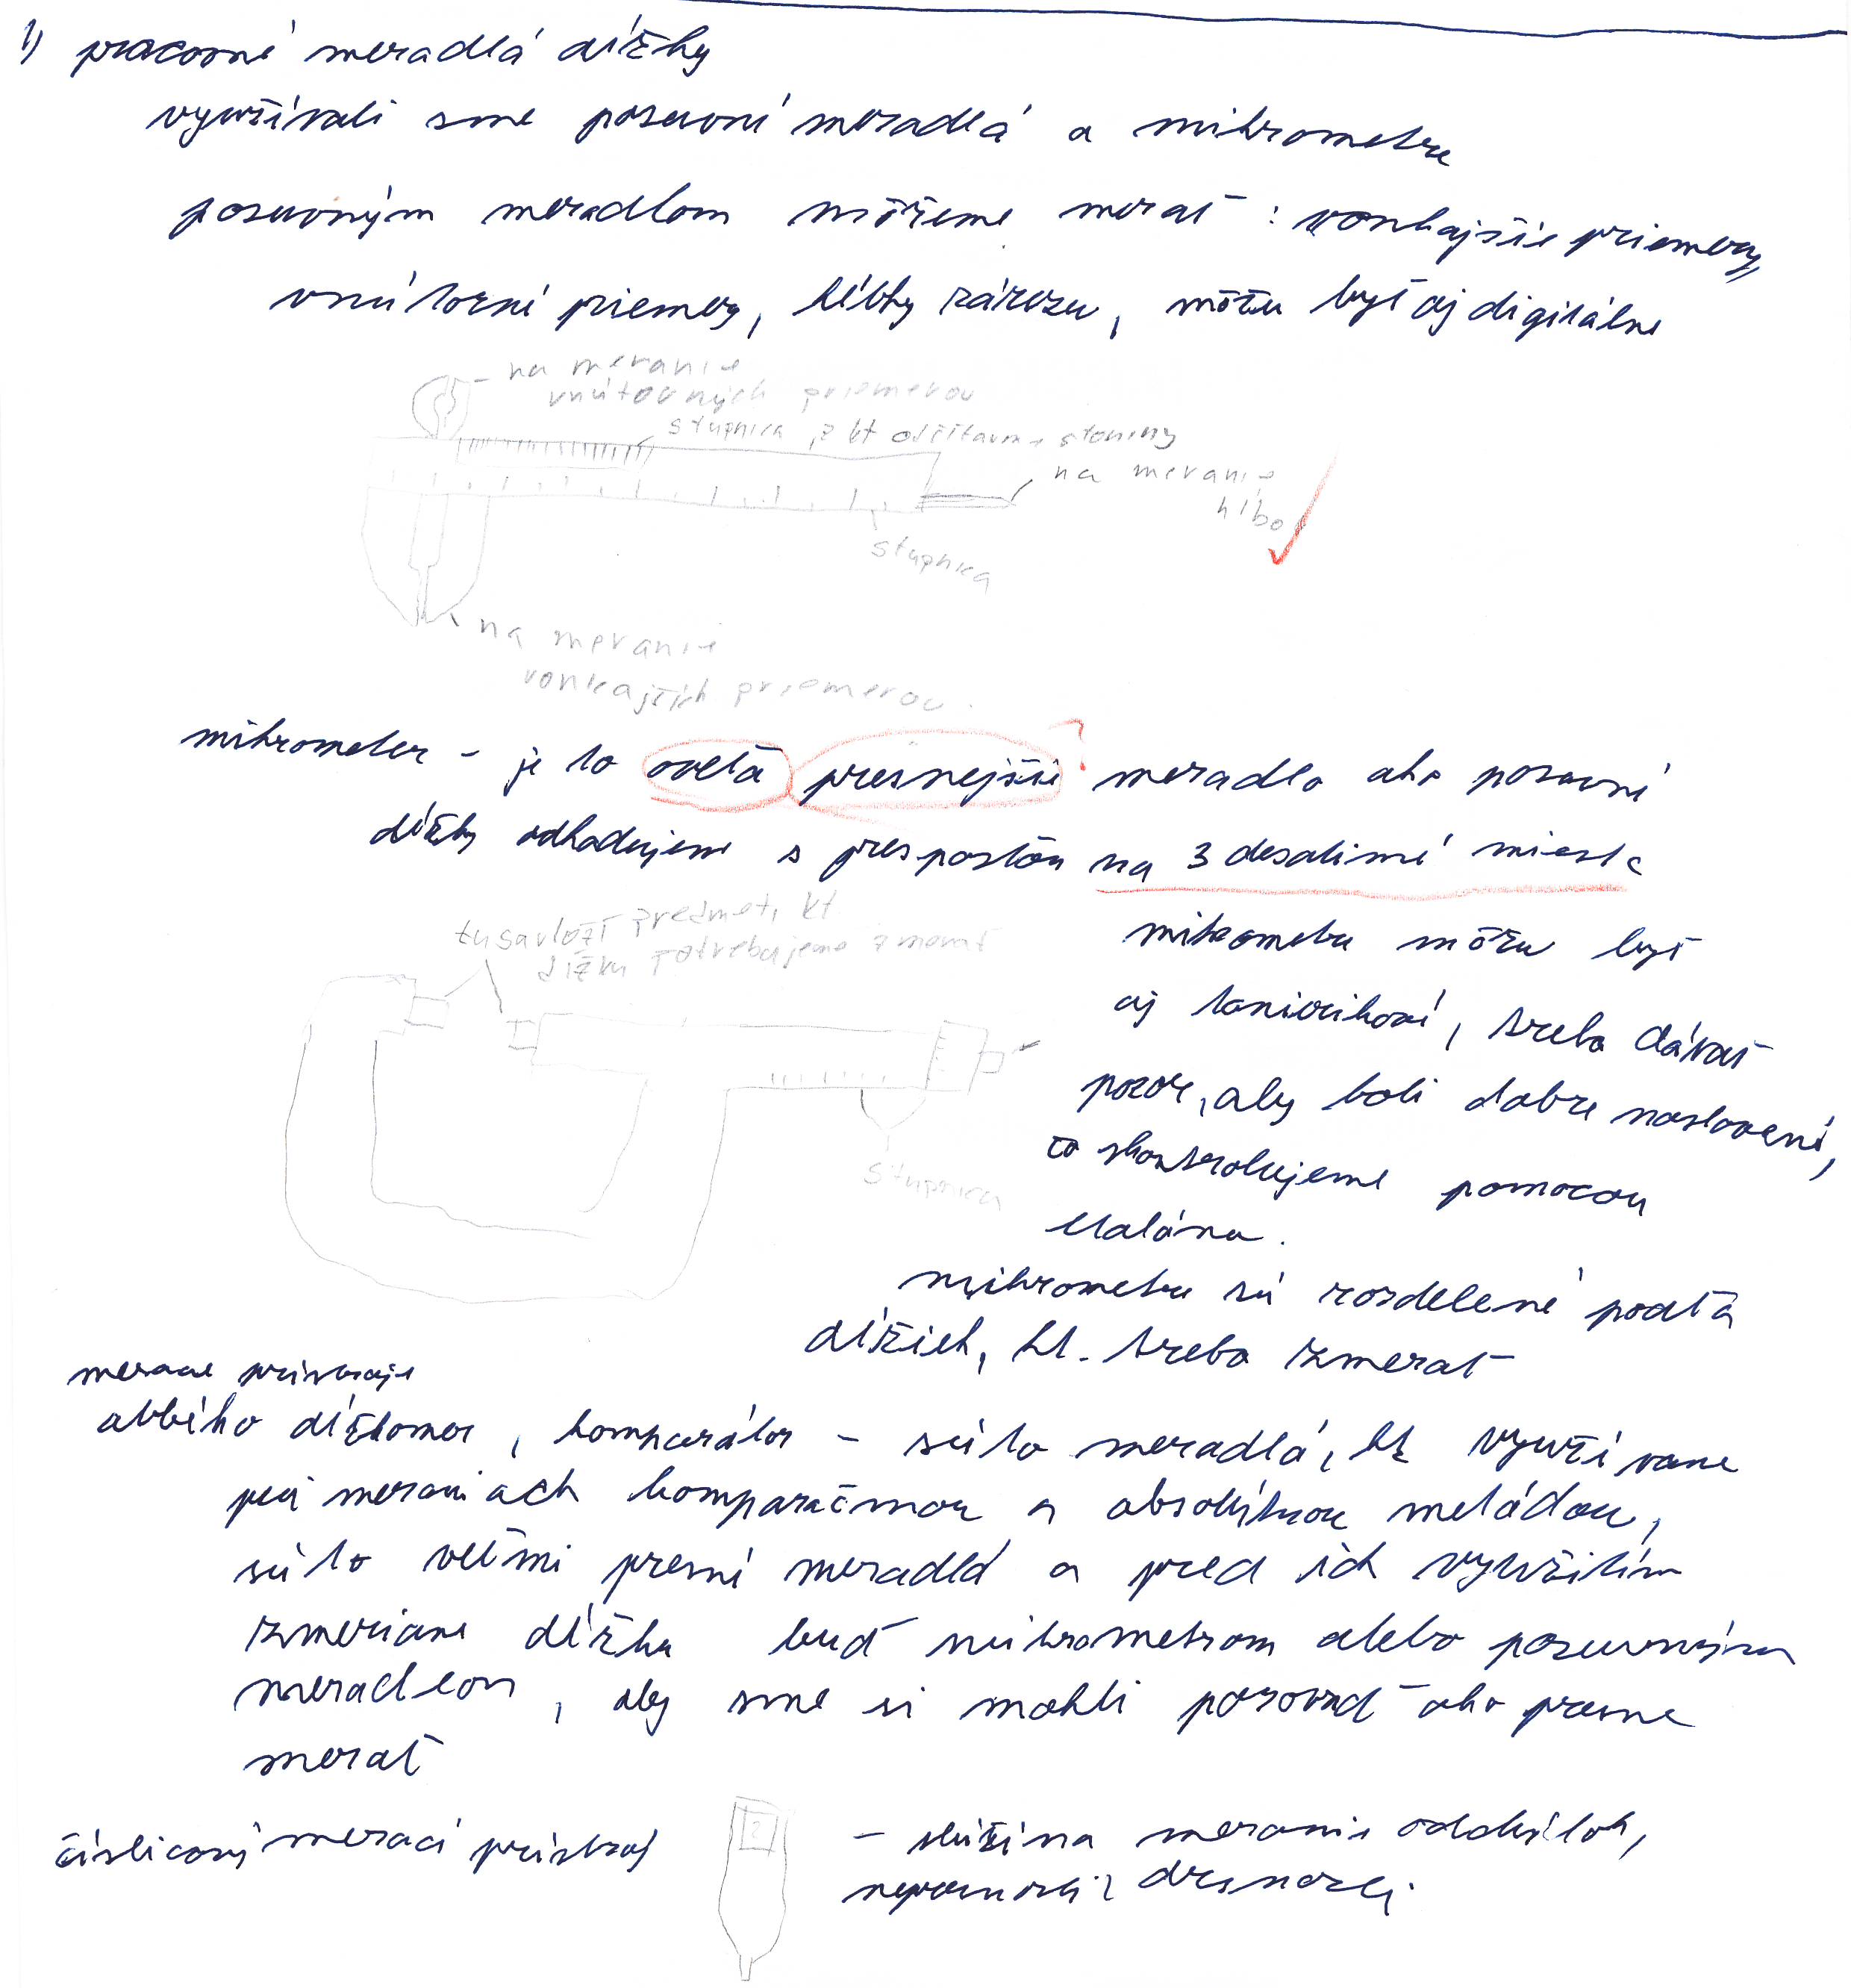 1) pracovné meradlá dĺžky
využívali sme posuvné meradlá a mikrometre
posuvným meradlom môžeme merať : vonkajšie priemery,
vnútorné priemery, hĺbky zárezu, môžu byť aj digitálne
- na meranie
vnútorných priemerov
stupnica, z kt odčítavame stotiny
na meranie
hĺbo
stupnica
na meranie
vonkajších priemerov.
mikrometer - je to oveľa presnejšie ? meradlo ako posuvné
dĺžky odhadujeme s presnosťou na 3 desatinné miesta
tu sa vloží predmet, kt
dĺžku potrebujeme zmerať
mikrometre môžu byť
aj tanierikové, treba dávať
pozor, aby boli dobre nastavené,
čo skontrolujeme pomocou
etalónu.
stupnica
mikrometre sú rozdelené podľa
dĺžiek, kt. treba zmerať
meracie prístroje
abbého dĺžkomer, komparátor - sú to meradlá, kt využívame
pri meraniach komparačnou a absolútnou metódou,
sú to veľmi presné meradlá a pred ich využitím
zmeriame dĺžku buď mikrometrom alebo posuvným
meradlom, aby sme si mohli porovnať ako presne
merať
číslicový merací prístroj
- slúži na meranie odchýlok,
nepresností, drsnosti.